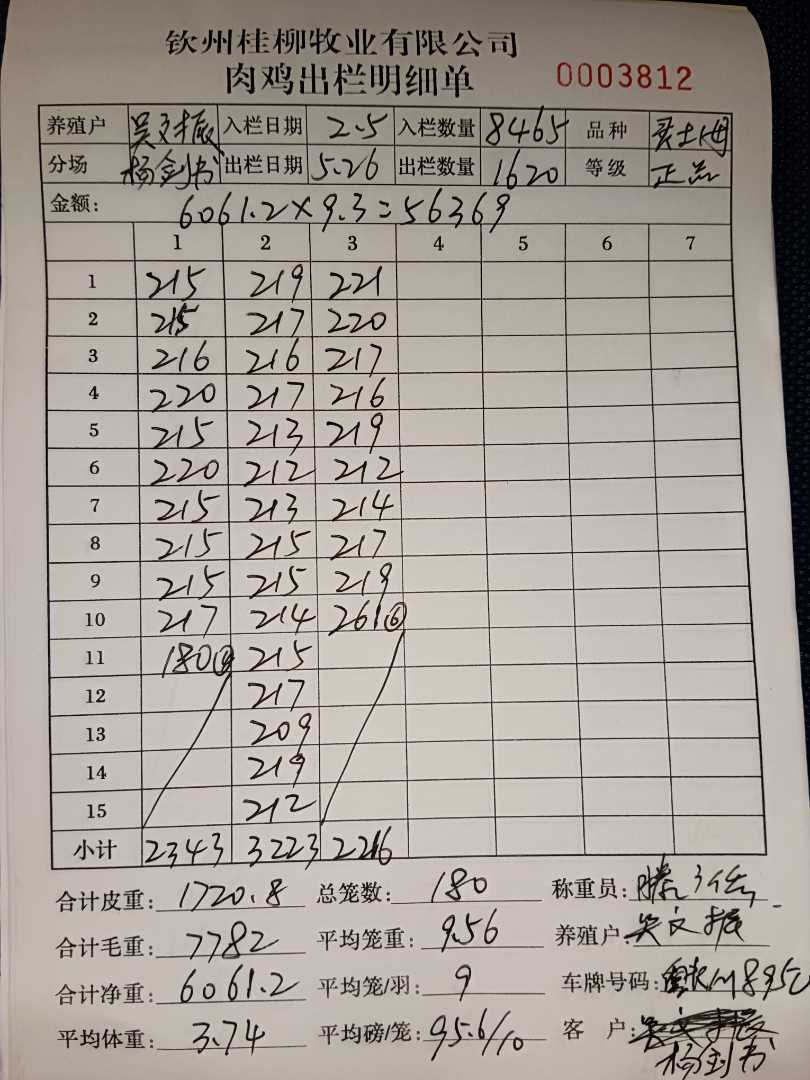 钦州桂柳牧业有限公司
肉鸡出栏明细单 0003812
养殖户 吴文振 入栏日期 2.5 入栏数量 8465 品种
分场 杨剑书 出栏日期 5.26 出栏数量 1620 等级 正品
金额: 6061.2×9.3=56369
1 2 3 4 5 6 7
1 215 219 221
2 215 217 220
3 216 216 217
4 220 217 216
5 215 213 219
6 220 212 212
7 215 213 214
8 215 215 217
9 215 215 219
10 217 214 261⑥
11 180 215
12 217
13 209
14 219
15 212
小计 2343 3223 2216
合计皮重: 1720.8 总笼数: 180 称重员:
合计毛重: 7782 平均笼重: 9.56 养殖户: 吴文振
合计净重: 6061.2 平均笼/羽: 9 车牌号码:
平均体重: 3.74 平均磅/笼: 95.6/10 客 户:
杨剑书